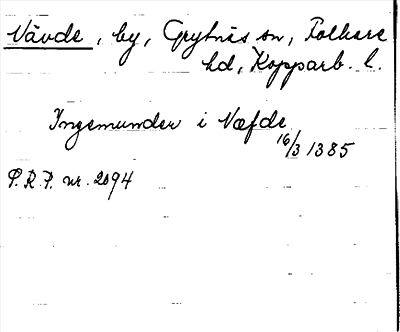 Vävde, by, Grytnäs sn, Folkare
hd, Kopparb. l.
Ingemunder i Næfde
16/3 1385
P.R.P. nr. 2094